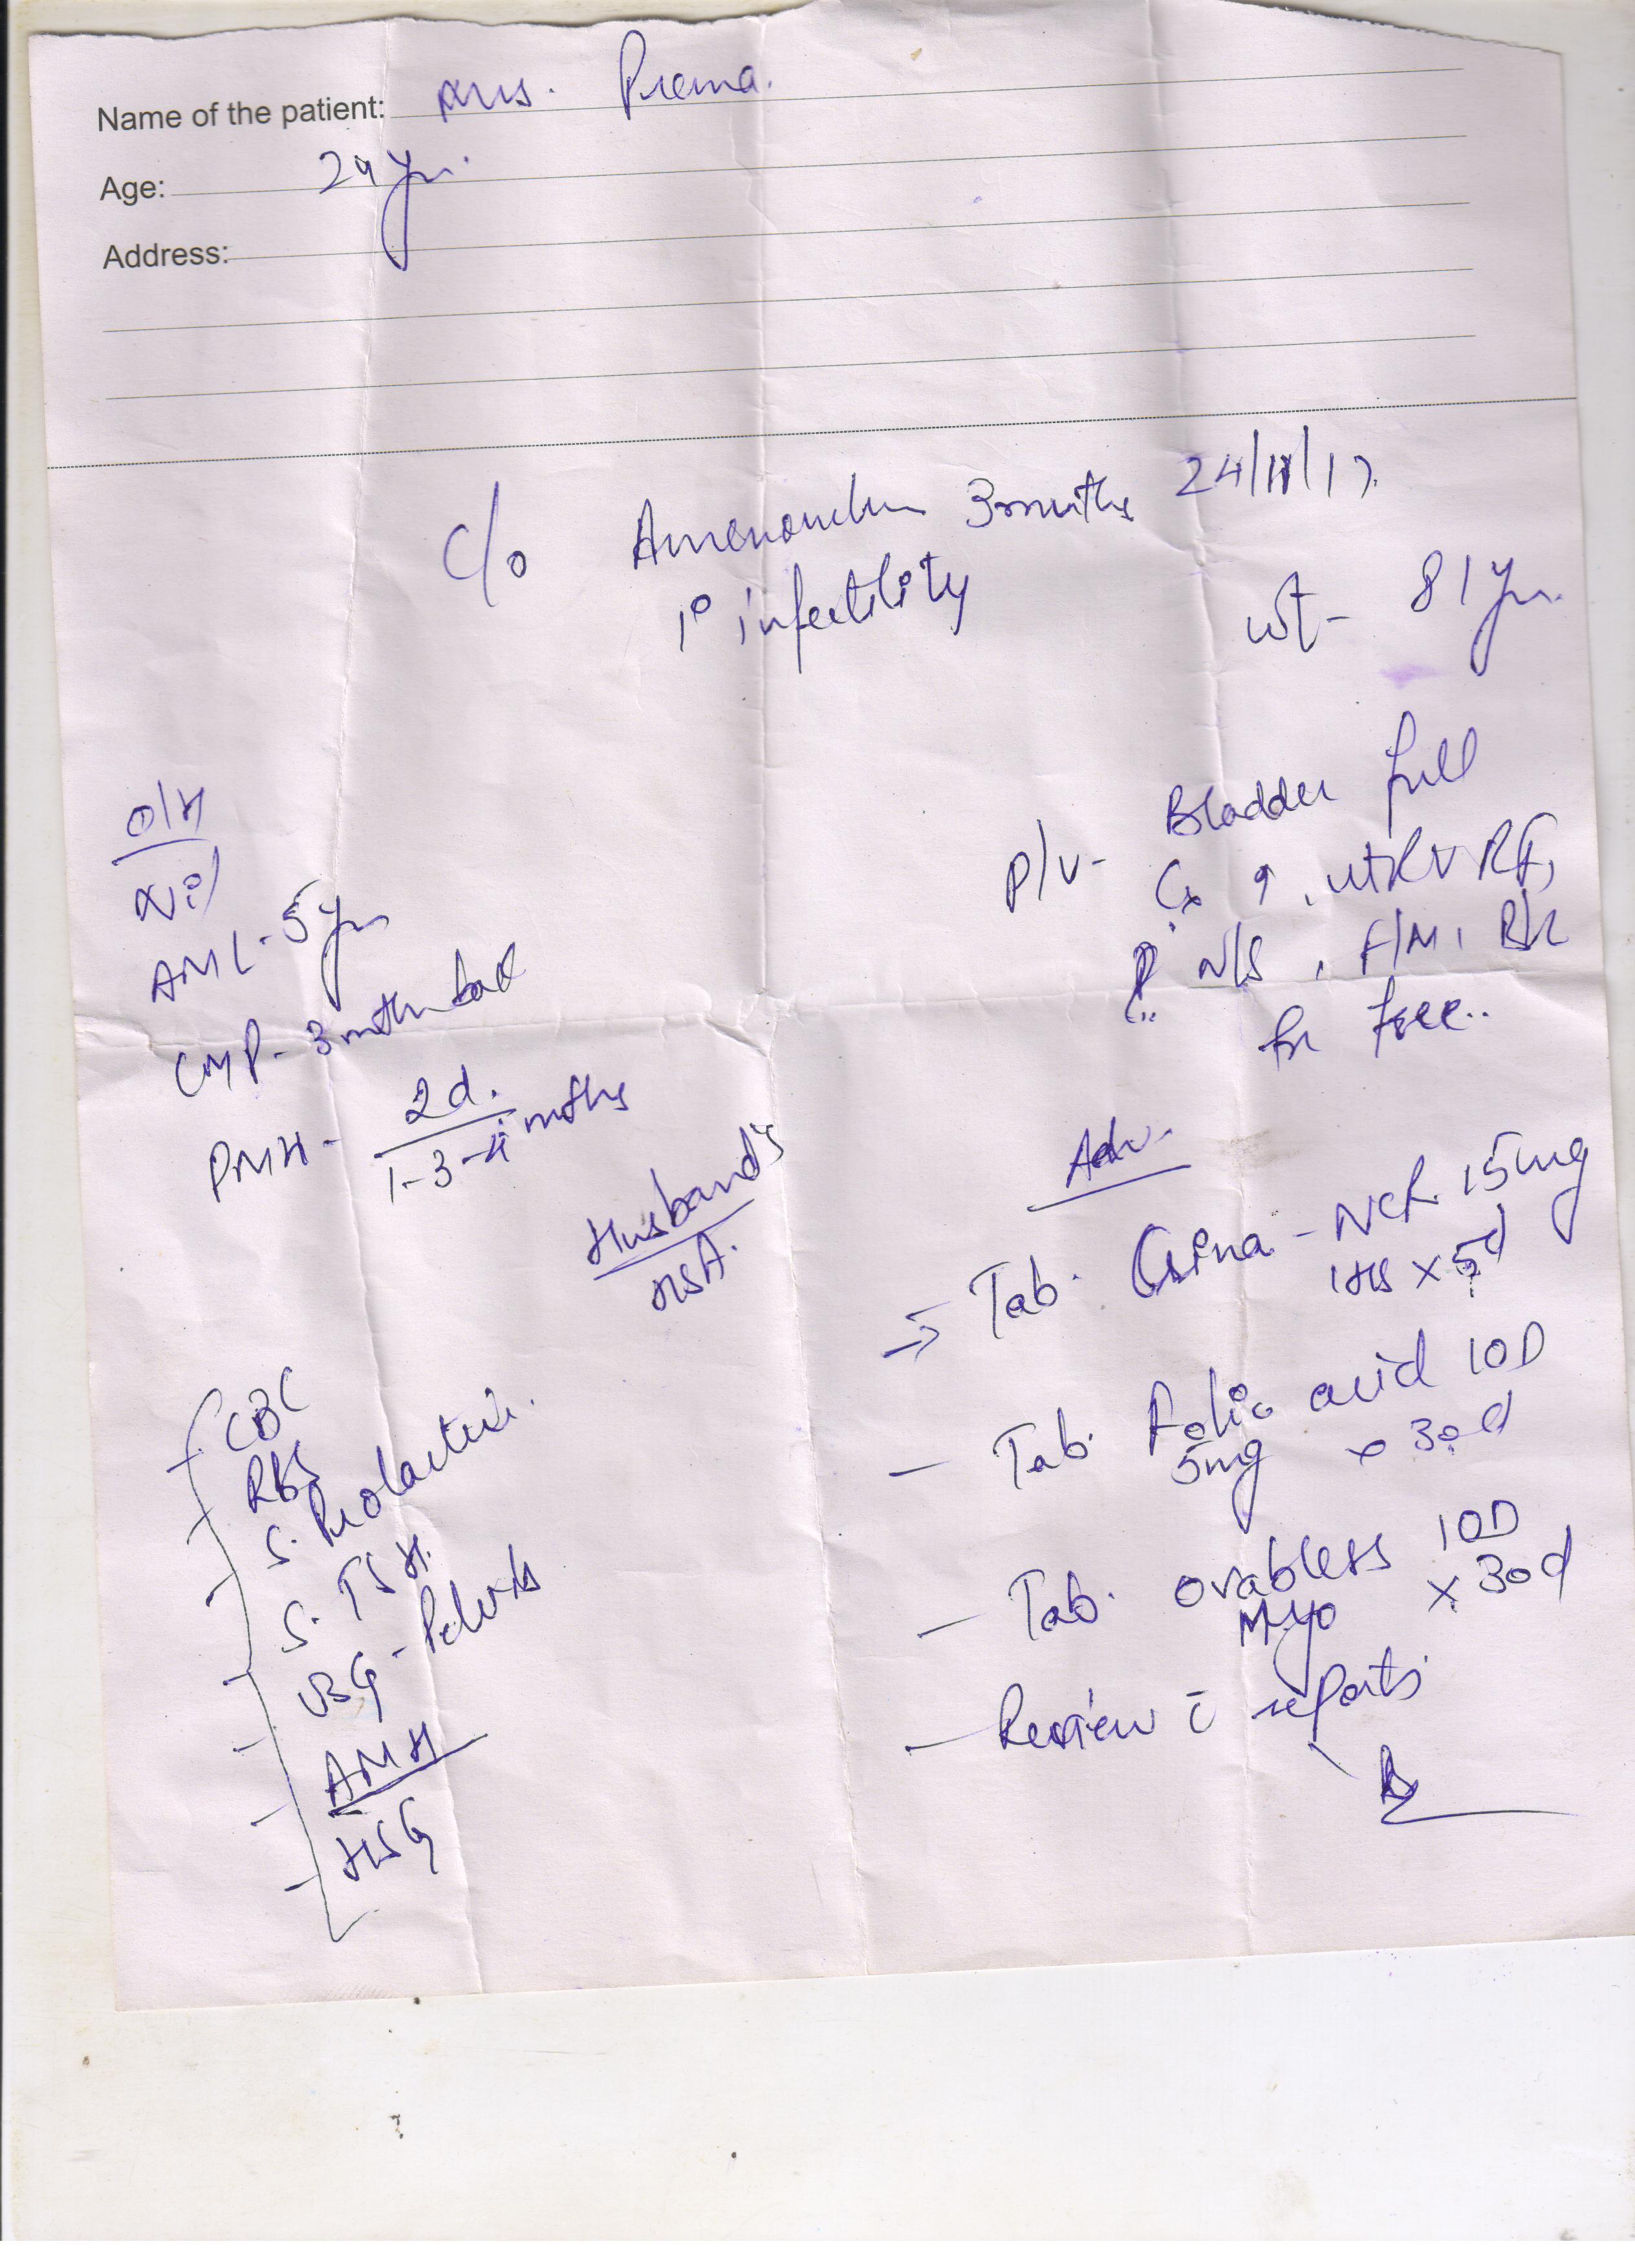 Name of the patient: Mrs. Prema.
Age: 29 yrs.
Address:
24/11/17.
C/o Amenorrhea 3 months
1° infertility
wt - 81 yrs.
O/H
Nil
AML - 5 yrs
LMP - 3 mths back
PMH - 2d.
1-3-4 mths
P/V - Bladder full
Cx , Ut RV RF,
N/S , F/M, B/L
fx free..
Husband's
HSA.
CBC
RBS
S. Prolactin.
S. TSH.
USG - Pelvis
AMH
HSG
Adv.
→ Tab. - NCR. 15mg
1HS x 5d
- Tab. Folic acid 1OD
5mg x 30d
- Tab. ovabless 1OD
Myo x 30d
- Review c̄ reports